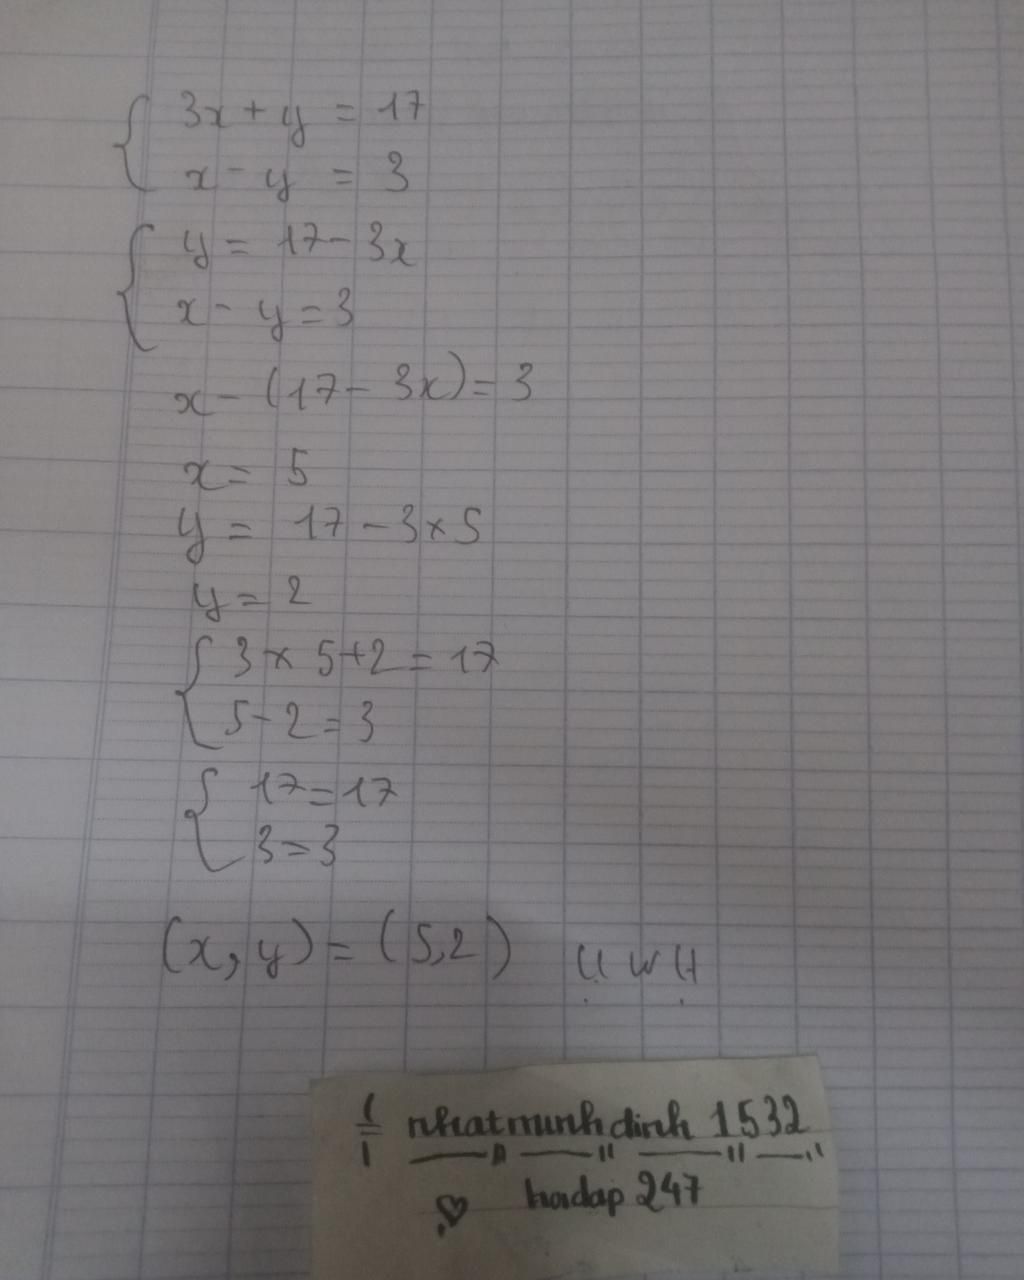 3x + y = 17
x - y = 3
y = 17 - 3x
x - y = 3
x - (17 - 3x) = 3
x = 5
y = 17 - 3 × 5
y = 2
3 × 5 + 2 = 17
5 - 2 = 3
17 = 17
3 = 3
(x, y) = (5,2) UwU
nhatminhdinh 1532
hoidap 247